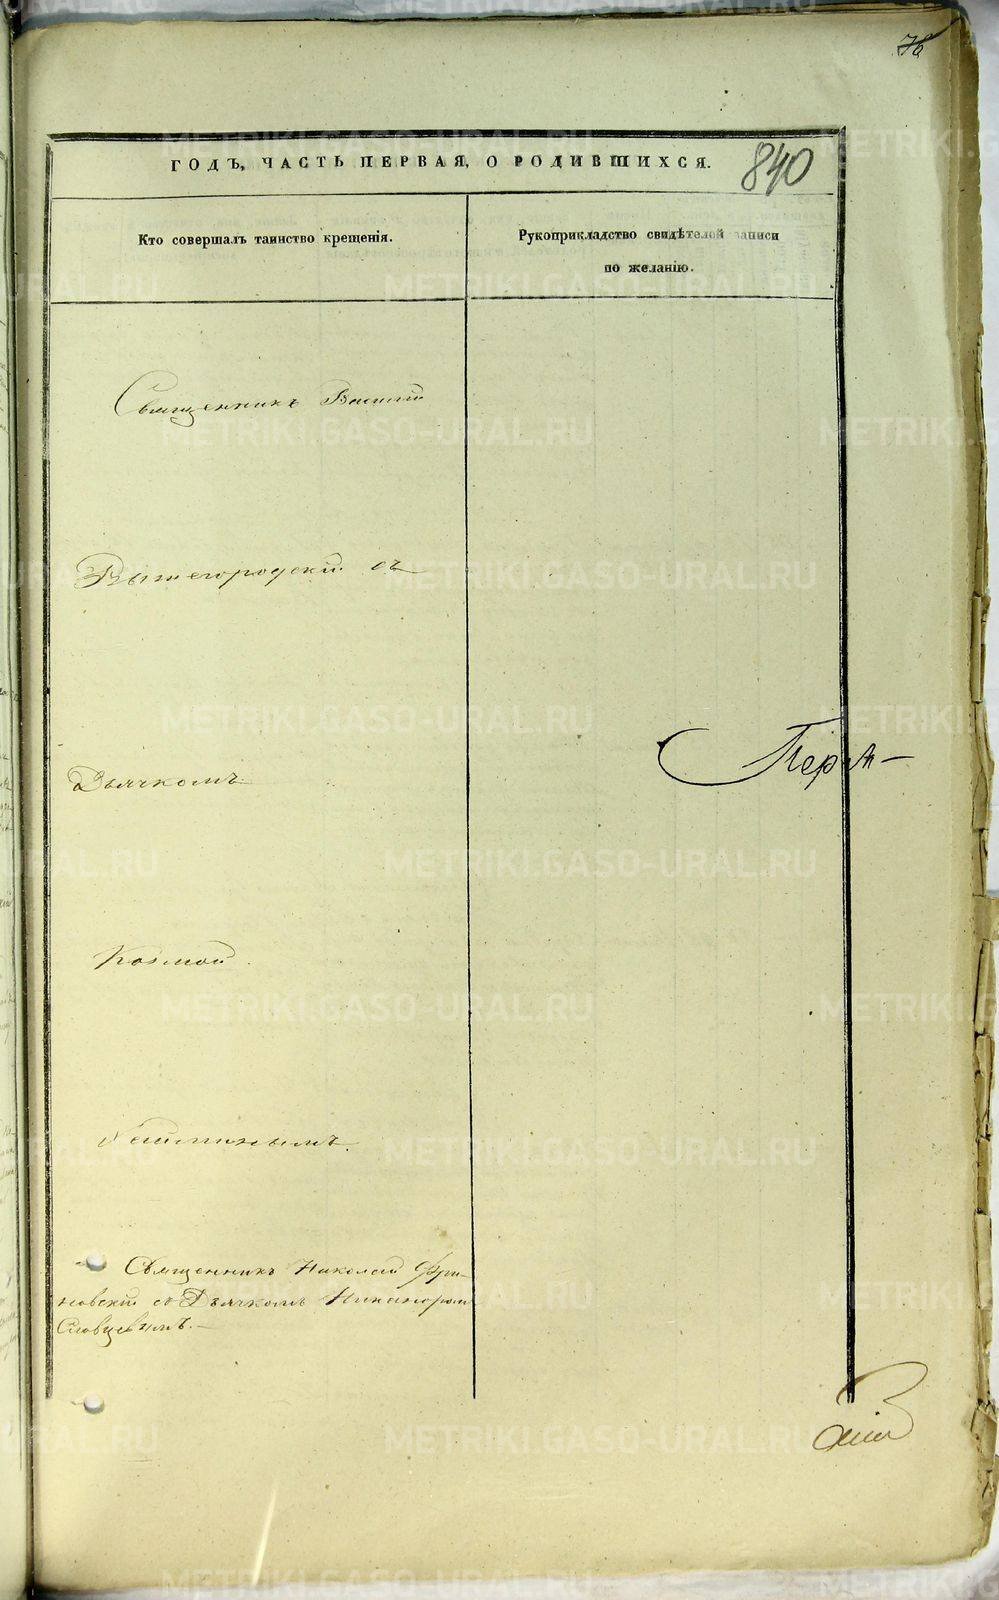 76
ГОДЪ, ЧАСТЬ ПЕРВАЯ, О РОДИВШИХСЯ.
840
Кто совершалъ таинство крещенія.
Рукоприкладство свидѣтелей записи
по желанію.
Священникъ
съ
Перм-
Дьячкомъ
Козмой
Священникъ Николай
новскій съ Дьячкомъ Никаноромъ
Словцевымъ.
METRIKI.GASO-URAL.RU